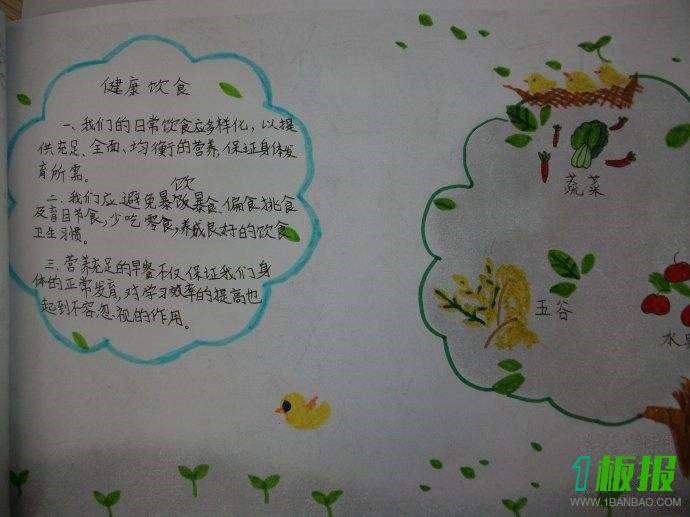 健康饮食
一、我们的日常饮食应多样化，以提
供充足、全面、均衡的营养，保证身体发
育所需。
饮
二、我们应避免暴饭暴食、偏食挑食
及盲目节食，少吃零食，养成良好的饮食
卫生习惯。
三、营养充足的早餐不仅保证我们身
体的正常发育，对学习效率的提高也
起到不容忽视的作用。
蔬菜
五谷
水
1板报
WWW.1BANBAO.COM